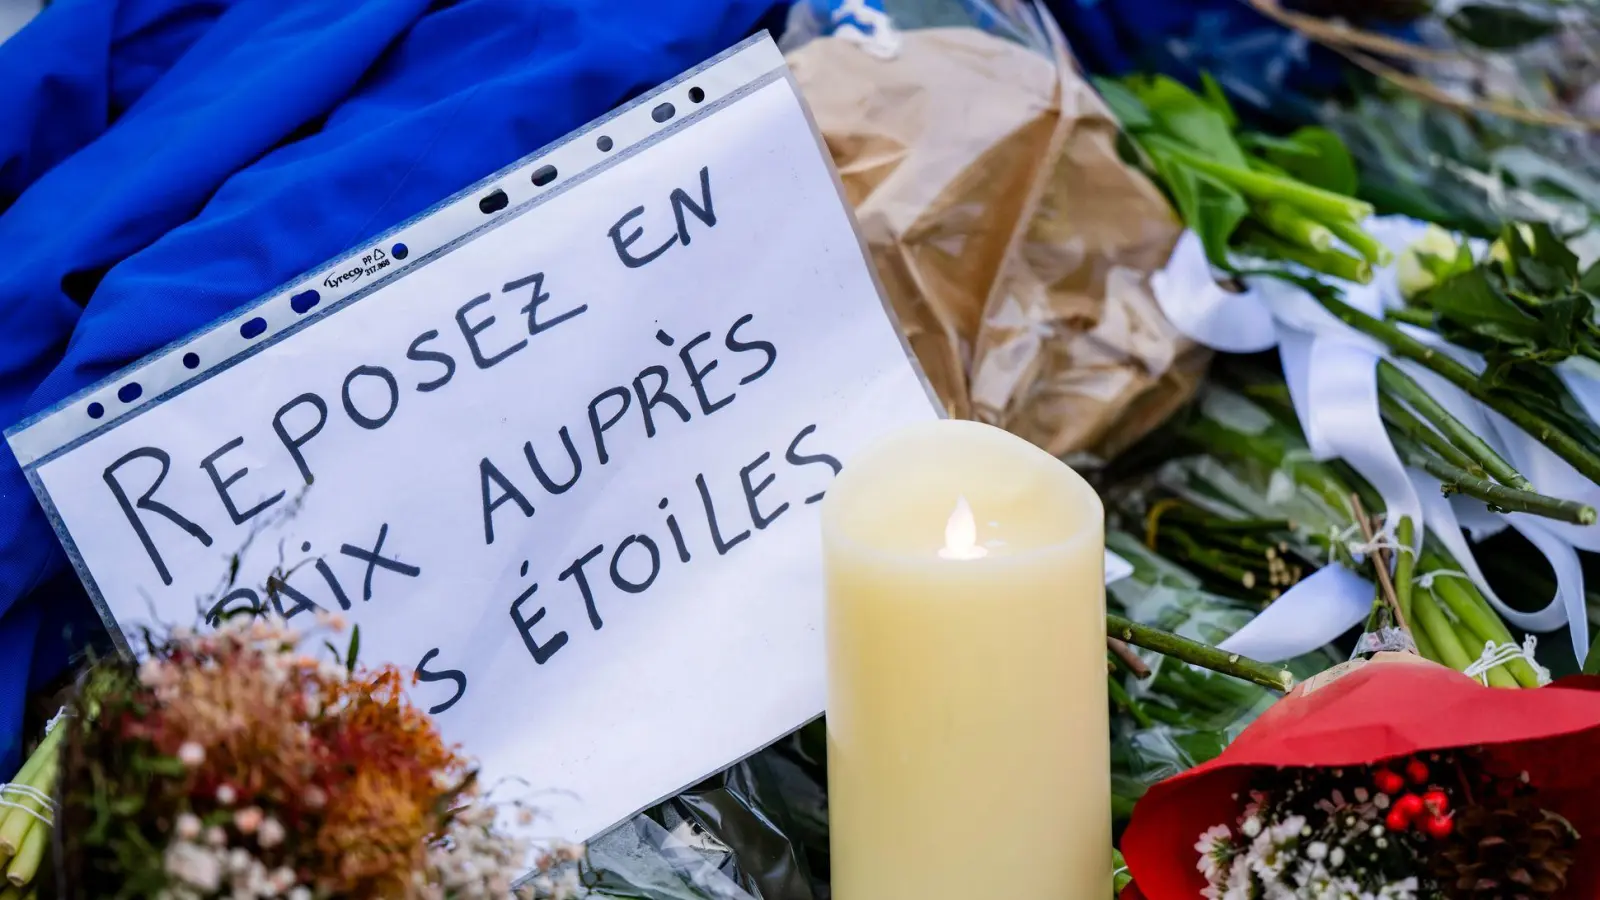 Lyreco PP
317.968
REPOSEZ EN
PAIX AUPRÈS
ÉTOILES